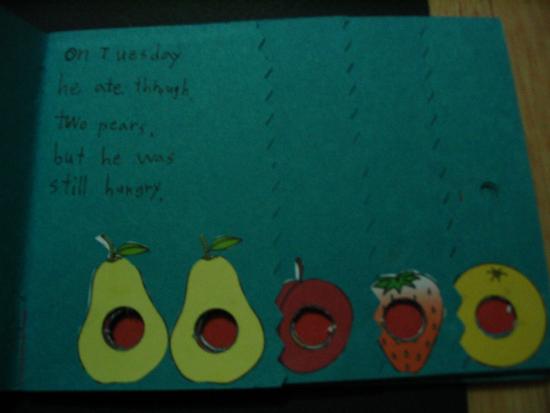 on Tuesday
he ate through
two pears,
but he was
still hungry.